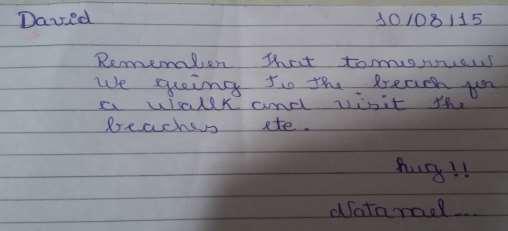 David 10/08/15
Remember that tomorrow
we going to the beach for
a wallk and visit the
beaches etc.
hug!!
Natanael...